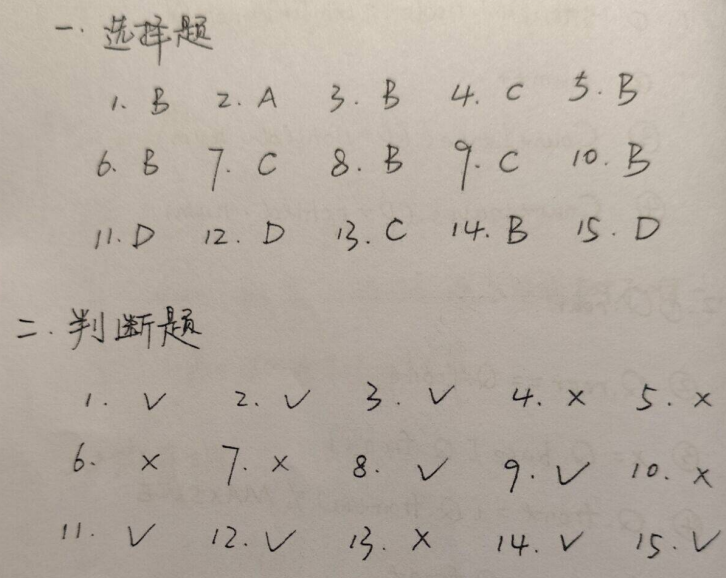 一. 选择题
1. B 2. A 3. B 4. C 5. B
6. B 7. C 8. B 9. C 10. B
11. D 12. D 13. C 14. B 15. D
二. 判断题
1. √ 2. √ 3. √ 4. × 5. ×
6. × 7. × 8. √ 9. √ 10. ×
11. √ 12. √ 13. × 14. √ 15. √